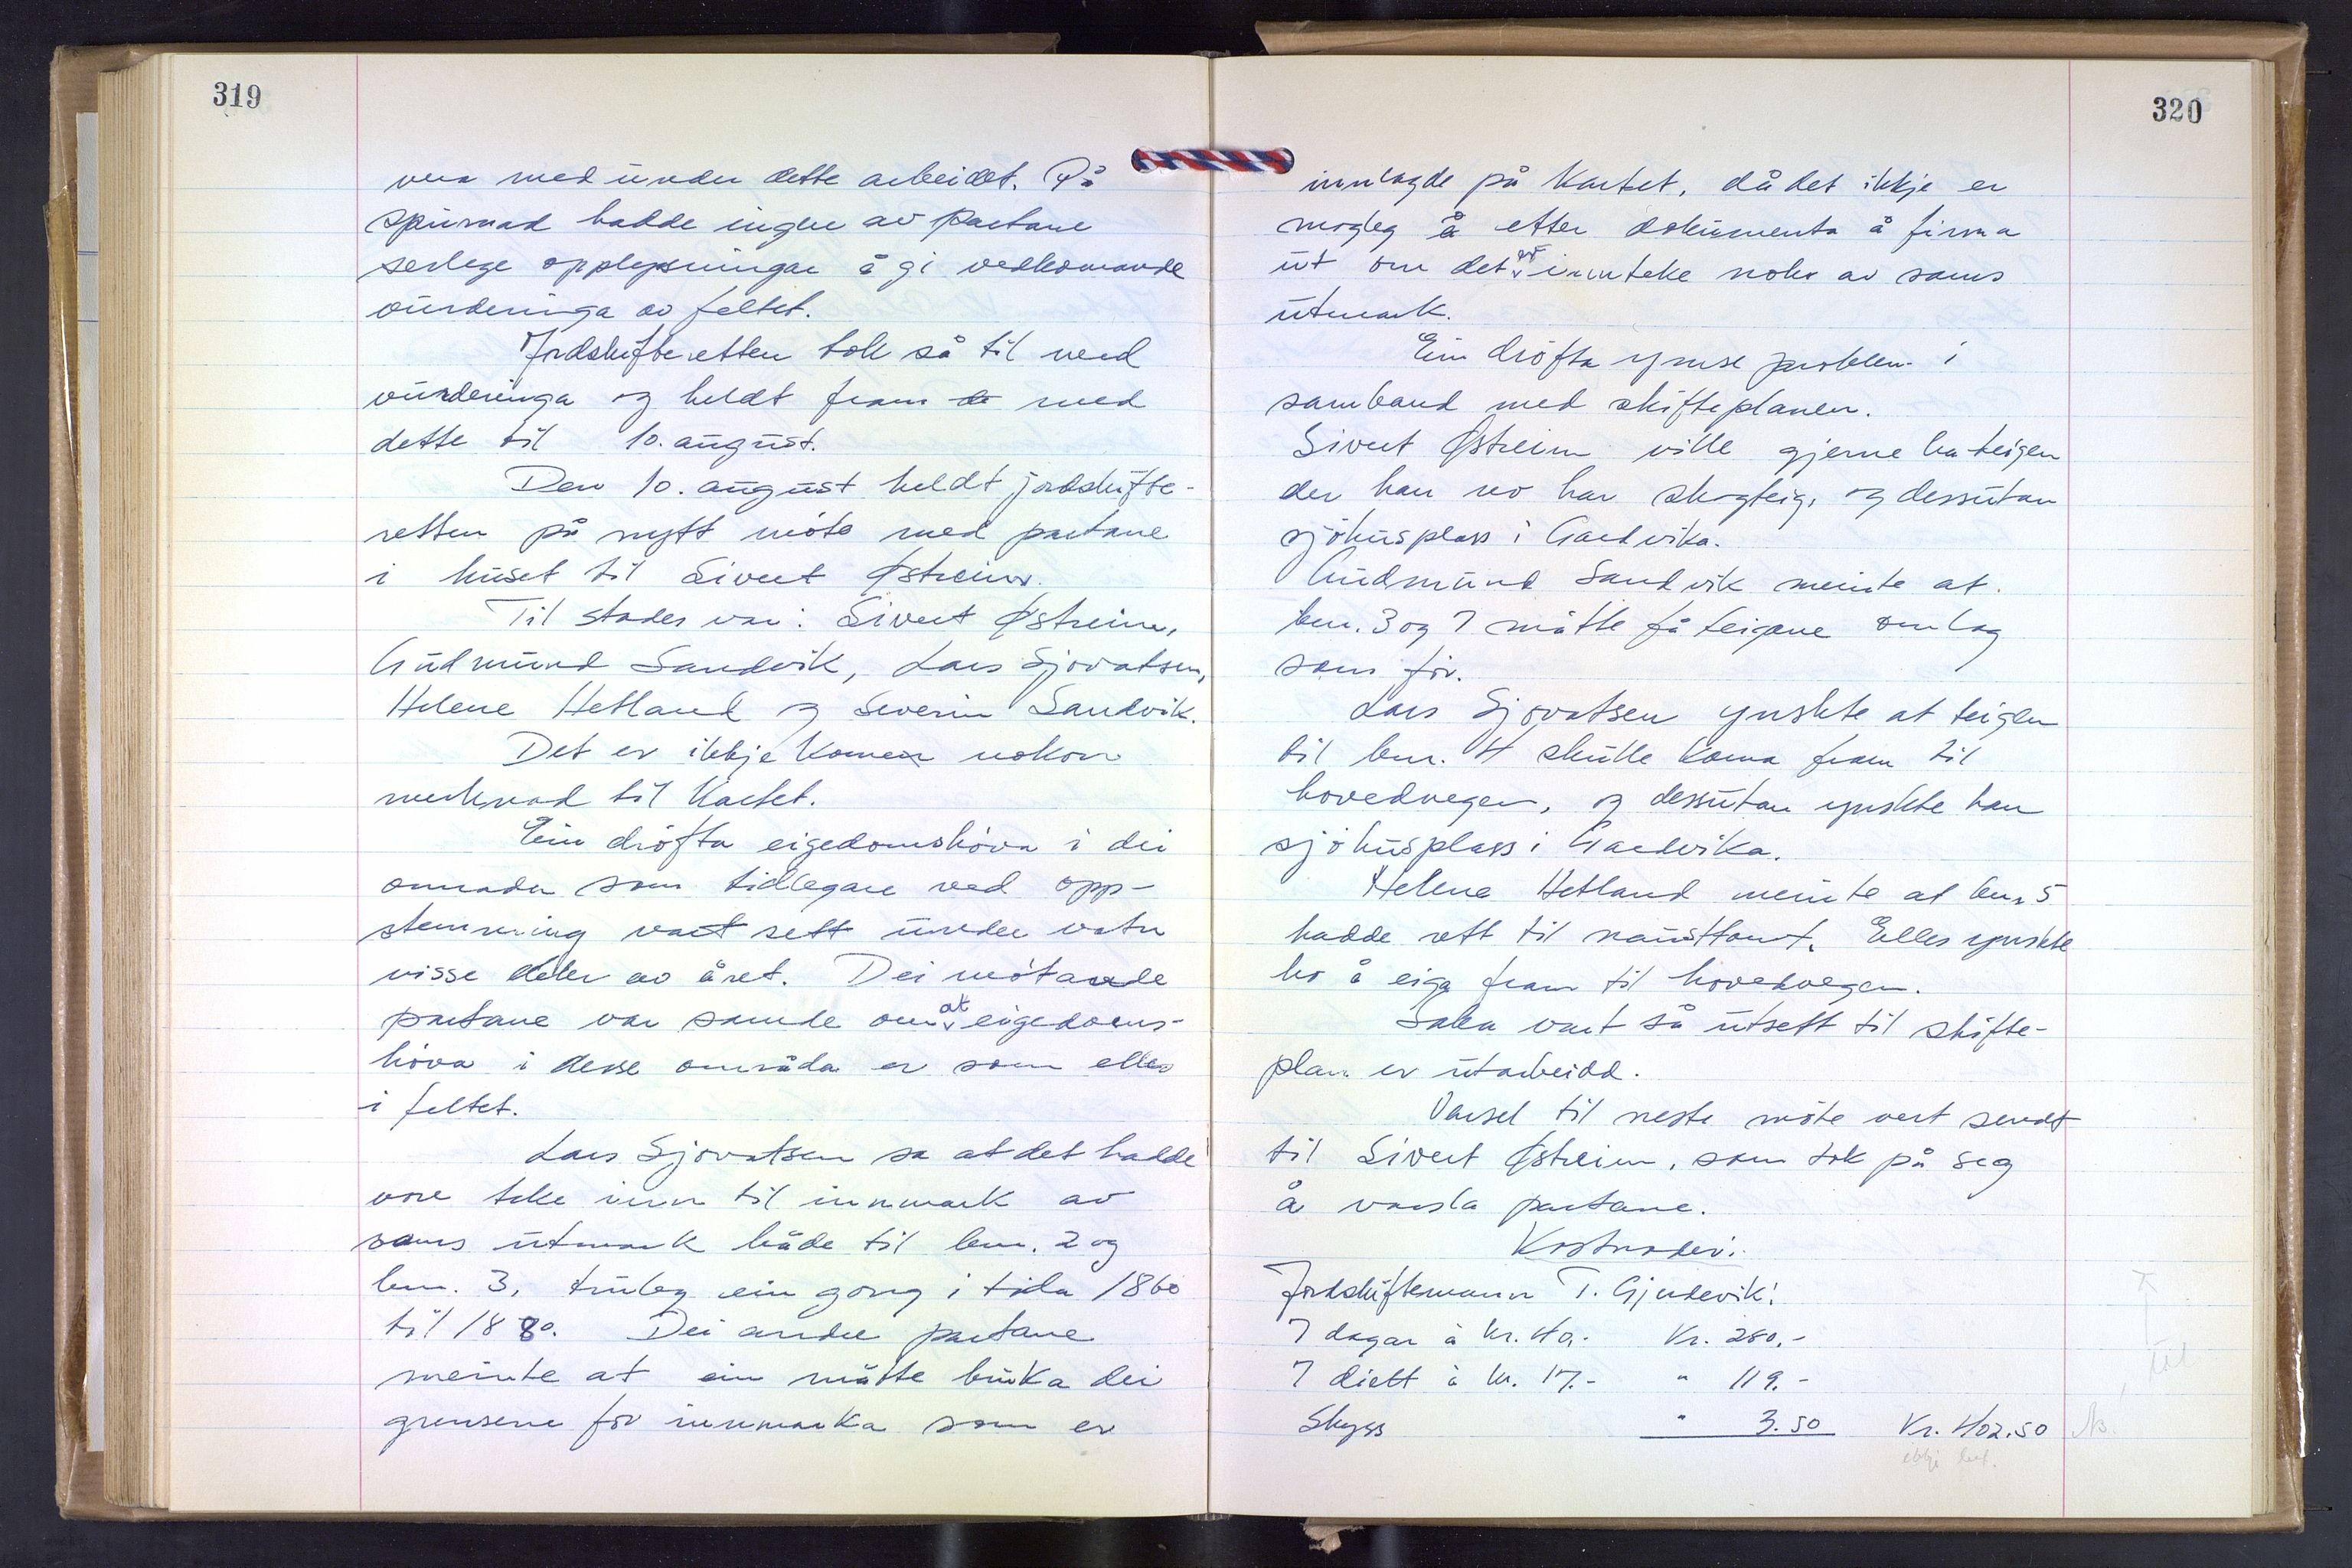 319
vera med under dette arbeidet. På
spurnad hadde ingen av partane
serlege opplysningar å gi vedkomande
vurderinga av feltet.
Jordskifteretten tok så til med
vurderinga og heldt fram de med
dette til 10. august.
Den 10. august heldt jordskifte-
retten på nytt møte med partane
i huset til Sivert Østreim.
Til stades var: Sivert Østreim,
Gudmund Sandvik, Lars Sjovatsen,
Helene Hetland og Severin Sandvik.
Det er ikkje komen nokon
merknad til kartet.
Ein drøfta eigedomshøva i dei
områder som tidlegare ved opp-
stemming vart sett under vatn
visse deler av året. Dei møtande
partane var samde om at eigedoms-
høva i desse områda er som elles
i feltet.
Lars Sjovatsen sa at det hadde
vore teke inn til innmark av
sams utmark både til bnr. 2 og
bnr. 3, truleg ein gong i tida 1860
til 1880. Dei andre partane
meinte at ein måtte bruka dei
grensene for innmarka som er
320
innlagde på kartet, då det ikkje er
mogleg å etter dokumenta å finna
ut om det er innteke noko av sams
utmark.
Ein drøfta ymse problem i
samband med skifteplanen.
Sivert Østreim ville gjerne ha teigen
der han no har skogteig, og dessutan
sjøhusplass i Gardvika.
Gudmund Sandvik meinte at
bnr. 3 og 7 måtte få teigane omlag
som før.
Lars Sjovatsen ynskte at teigen
til bnr. 4 skulle koma fram til
hovedvegen, og dessutan ynskte han
sjøhusplass i Gardvika.
Helene Hetland meinte at bnr. 5
hadde rett til nausttomt. Elles ynskte
ho å eiga fram til hovedvegen.
Saka vart så utsett til skifte-
plan er utarbeidd.
Varsel til neste møte vert sendt
til Sivert Østreim, som tok på seg
å varsla partane.
Kostnader:
Jordskiftemann T. Gjerdevik:
7 dagar à kr. 40.- Kr. 280.-
7 diett à kr. 17.- " 119.-
Skyss " 3.50 Kr. 402.50
ikkje bet.